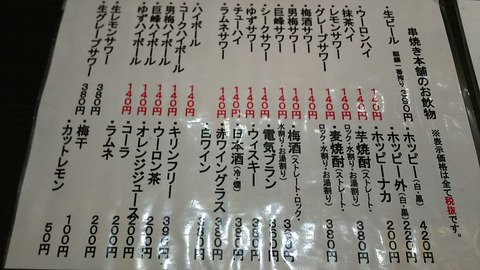 串焼き本舗のお飲物
※表示価格は全て税抜です。
・生ビール 麒麟一番搾り 390円
・ウーロンハイ 140円
・抹茶ハイ 140円
・レモンサワー 140円
・グレープサワー 140円
・梅酒サワー 140円
・男梅サワー 140円
・巨峰サワー 140円
・シークサワー 140円
・ゆずサワー 140円
・チューハイ 140円
・ラムネサワー 140円
・ハイボール 140円
・コークハイボール 140円
・男梅ハイボール 140円
・巨峰ハイボール 140円
・ゆずハイボール 140円
・生レモンサワー 380円
・生グレープサワー 380円
・ホッピー(白・黒) 420円
・ホッピー外(白・黒) 220円
・ホッピーナカ 200円
・芋焼酎(ストレート・ロック・水割り・お湯割り) 380円
・麦焼酎(ストレート・ロック・水割り・お湯割り) 380円
・梅酒(ストレート・ロック・水割り・お湯割り)
・電気ブラン
・ウィスキー
・日本酒(冷・燗)
・赤ワイングラス 380円
・白ワイン 380円
・キリンフリー 390円
・ウーロン茶 200円
・オレンジジュース 200円
・コーラ 200円
・ラムネ 200円
・梅干 100円
・カットレモン 50円